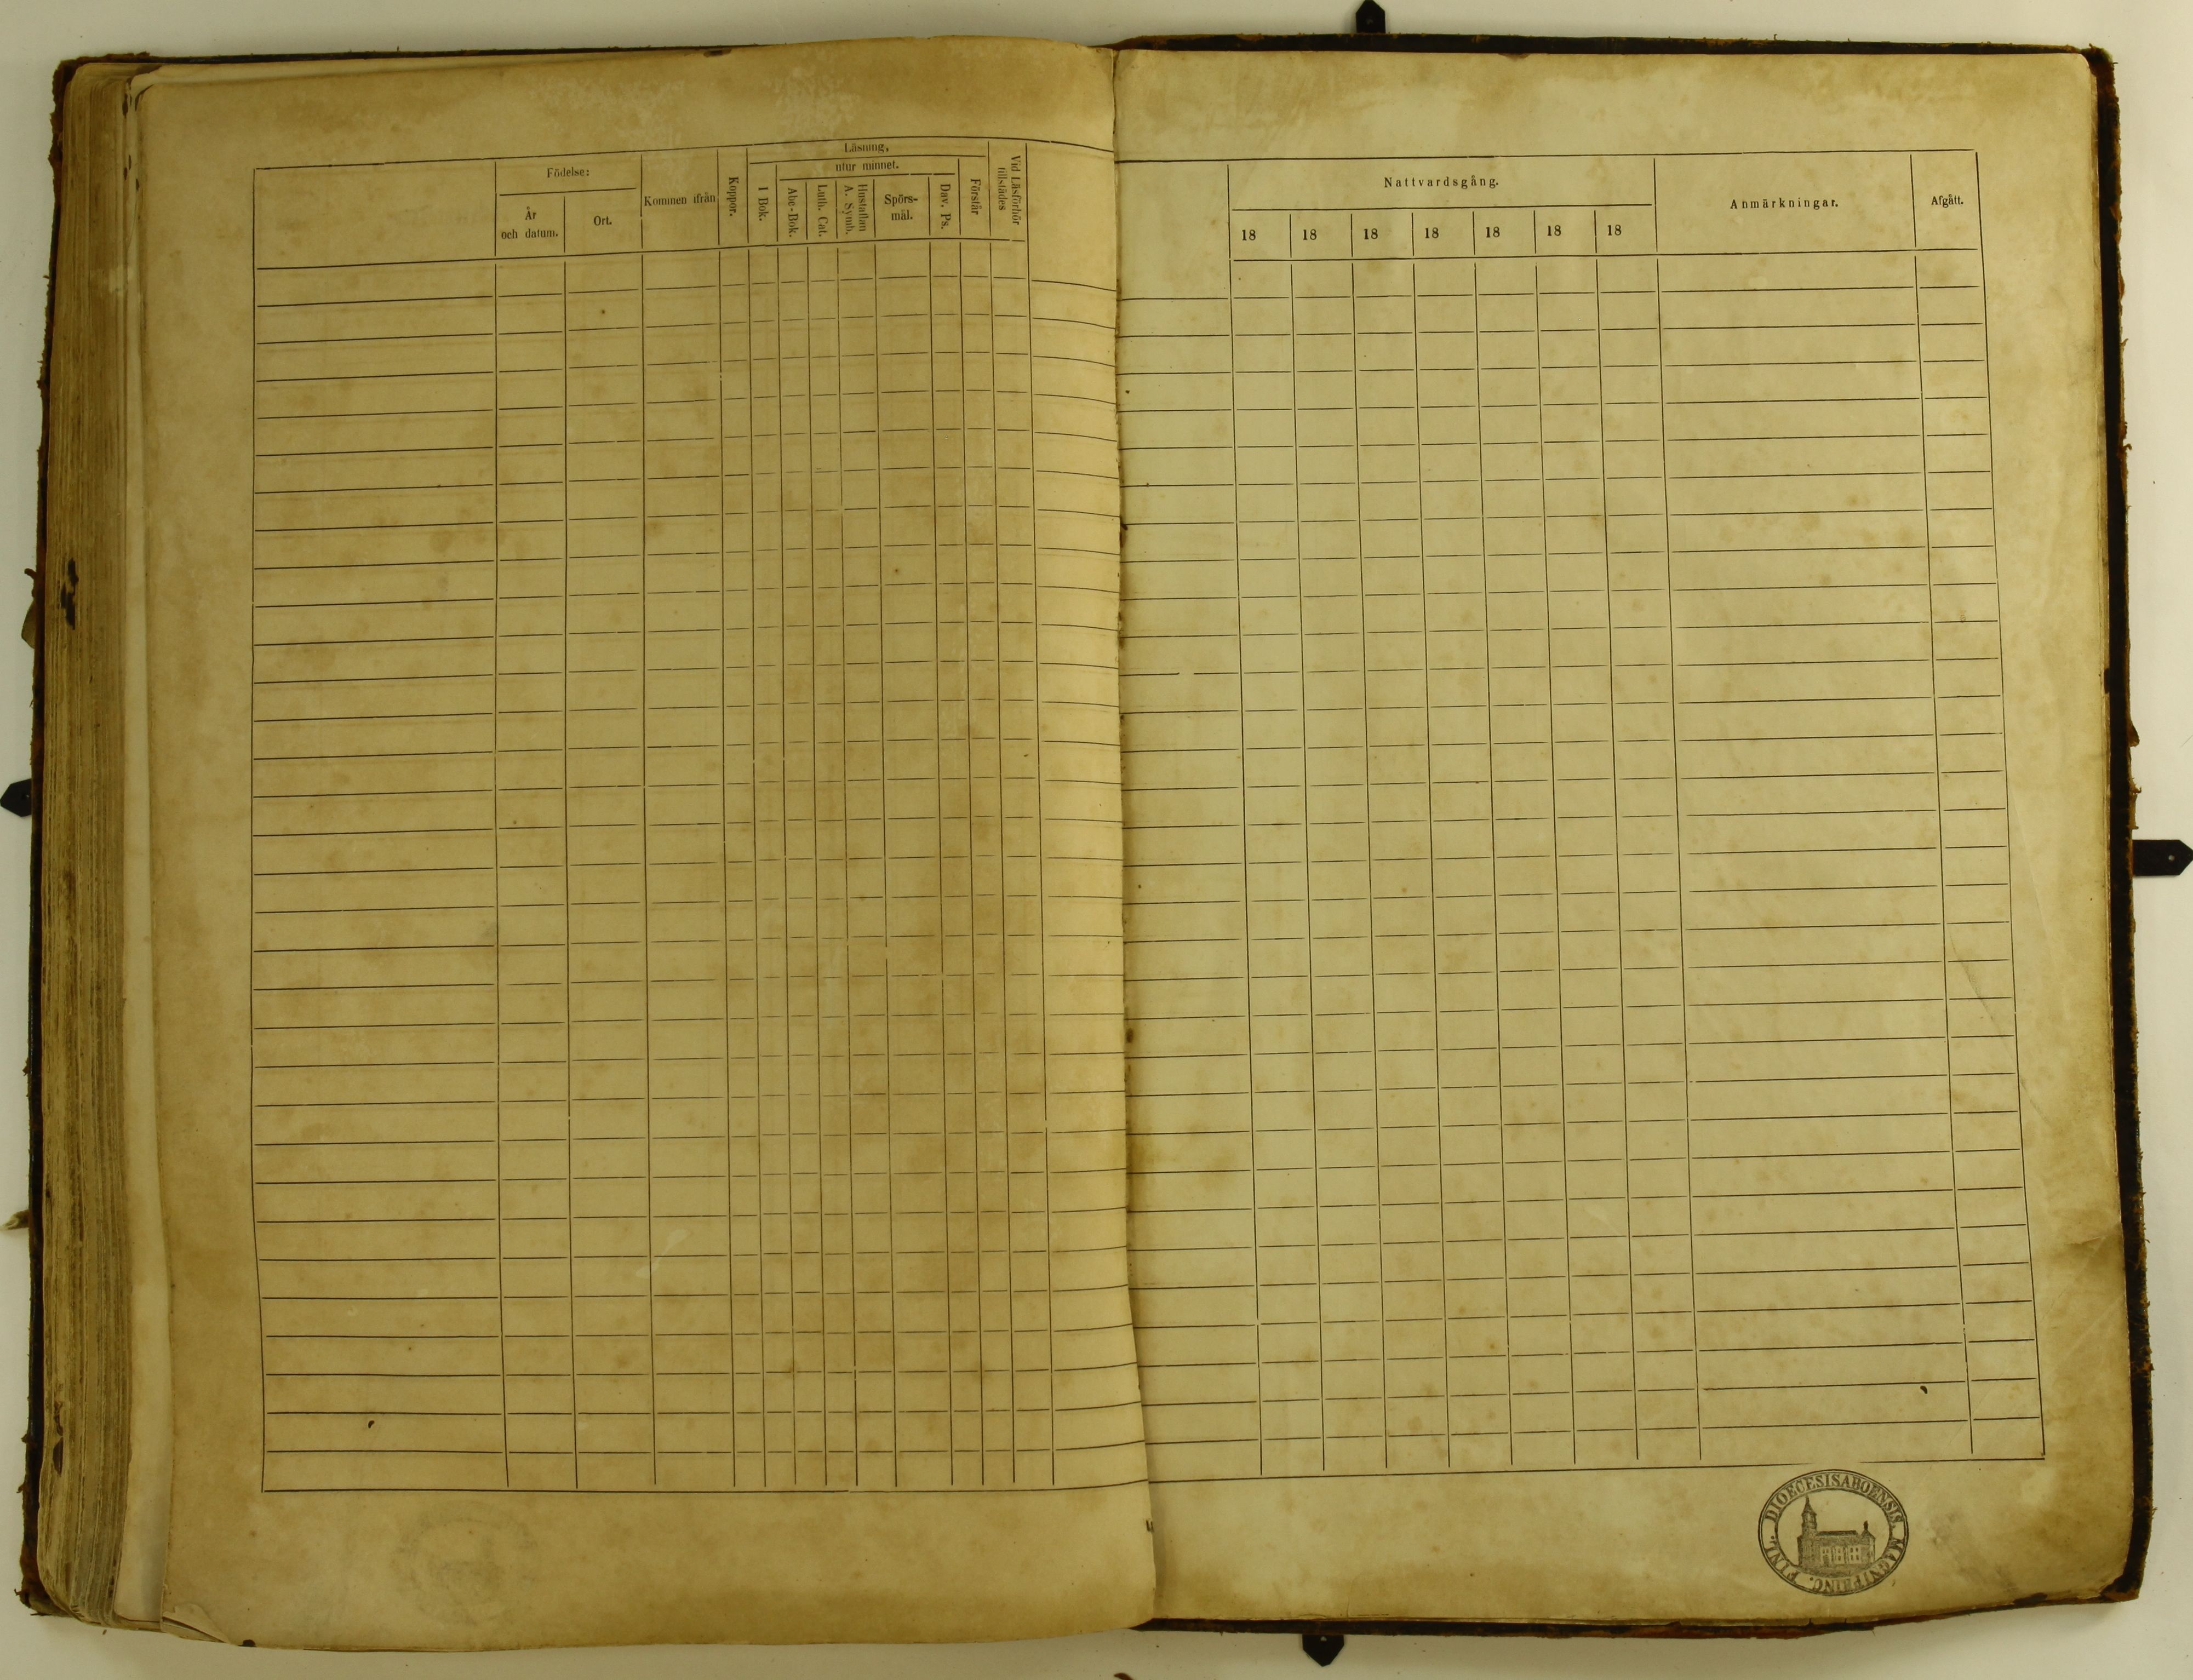 Födelse:
År
och datum.
Ort.
Kommen ifrån
Koppor.
Läsning,
utur minnet.
I Bok.
Abc-Bok.
Luth. Cat.
Hustaflan
A. Symb.
Spörs-
mål.
Dav. Ps.
Förstår
Vid Läsförhör
tillstädes
Nattvardsgång.
18 18 18 18 18 18 18
Anmärkningar.
Afgått.
DIOECESISABOENSIS MAGNIPRINC. FINL.